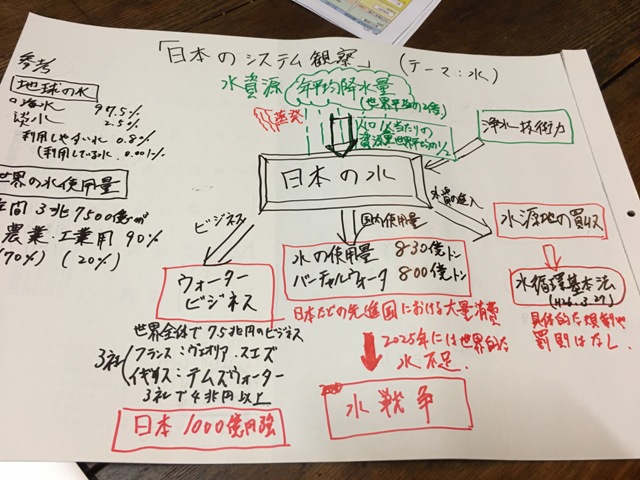 「日本のシステム観察」 (テーマ:水)
参考
地球の水
海水 97.5%
淡水 2.5%
利用しやすい水 0.8%
(利用している水 0.001%
世界の水使用量
年間 3兆7500億m³
農業・工業用 90%
(70%) (20%)
水資源
年平均降水量
(世界平均の2倍)
蒸発
人口1人当たりの
資源量世界平均の1/2
浄水技術力
日本の水
ビジネス
国内使用量
外資の参入
ウォーター
ビジネス
水の使用量 830億トン
バーチャルウォータ 800億トン
水源地の買収
水循環基本法
(H26.3.27)
具体的な規制や
罰則はなし.
日本などの先進国における大量消費
世界全体で75兆円のビジネス
3社
フランス:ヴェオリア.スエズ
イギリス:テムズウォーター
3社で4兆円以上
日本 1000億円強
2025年には世界的な
水不足.
水戦争